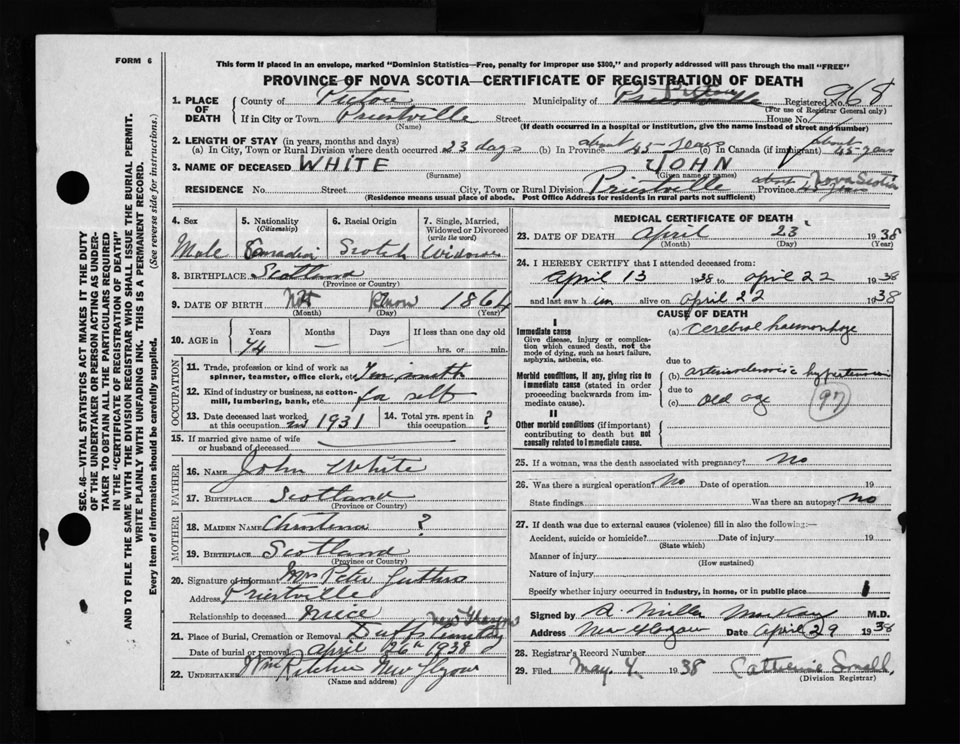 FORM 6
This form if placed in an envelope, marked "Dominion Statistics—Free, penalty for improper use $300," and properly addressed will pass through the mail "FREE"
PROVINCE OF NOVA SCOTIA—CERTIFICATE OF REGISTRATION OF DEATH
1. PLACE OF DEATH
County of Pictou Municipality of Pictou Registered No. 968
(For use of Registrar General only)
If in City or Town Priestville Street House No.
(Name) (If death occurred in a hospital or institution, give the name instead of street and number)
2. LENGTH OF STAY (in years, months and days)
(a) In City, Town or Rural Division where death occurred 23 days (b) In Province about 45 years (c) In Canada (if immigrant) about 45 years
3. NAME OF DECEASED WHITE JOHN
(Surname) (Given name or names)
RESIDENCE No. Street City, Town or Rural Division Priestville Province Nova Scotia
about 45 years
(Residence means usual place of abode. Post Office Address for residents in rural parts not sufficient)
4. Sex
Male
5. Nationality
(Citizenship)
Canadian
6. Racial Origin
Scotch
7. Single, Married, Widowed or Divorced
(write the word)
Widower
8. BIRTHPLACE Scotland
(Province or Country)
9. DATE OF BIRTH Not Known 1864
(Month) (Day) (Year)
10. AGE in Years Months Days If less than one day old
74 — — hrs. or min.
OCCUPATION
11. Trade, profession or kind of work as spinner, teamster, office clerk, etc. Tinsmith
12. Kind of industry or business, as cotton-mill, lumbering, bank, etc. for self
13. Date deceased last worked at this occupation in 1931
14. Total yrs. spent in this occupation ?
15. If married give name of wife or husband of deceased
FATHER
16. NAME John White
17. BIRTHPLACE Scotland
(Province or Country)
MOTHER
18. MAIDEN NAME Christina ?
19. BIRTHPLACE Scotland
(Province or Country)
20. Signature of informant Mrs Peter
Address Priestville
Relationship to deceased niece
21. Place of Burial, Cremation or Removal Duffs Cemetery New Glasgow
Date of burial or removal April 26th 1938
22. UNDERTAKER New Glasgow
(Name and address)
MEDICAL CERTIFICATE OF DEATH
23. DATE OF DEATH April 23 1938
(Month) (Day) (Year)
24. I HEREBY CERTIFY that I attended deceased from:
April 13 1938 to April 22 1938
and last saw him alive on April 22 1938
CAUSE OF DEATH
I
Immediate cause
Give disease, injury or complication which caused death, not the mode of dying, such as heart failure, asphyxia, asthenia, etc.
(a) Cerebral haemorrhage
due to
Morbid conditions, if any, giving rise to immediate cause (stated in order proceeding backwards from immediate cause).
(b) arteriosclerosis c hypertension
due to
(c) old age
(97)
II
Other morbid conditions (if important) contributing to death but not causally related to immediate cause.
25. If a woman, was the death associated with pregnancy? No
26. Was there a surgical operation? No Date of operation 19
State findings Was there an autopsy? no
27. If death was due to external causes (violence) fill in also the following:—
Accident, suicide or homicide? Date of injury 19
(State which)
Manner of injury
(How sustained)
Nature of injury
Specify whether injury occurred in industry, in home, or in public place
Signed by A. Miller MacKay M.D.
Address New Glasgow Date April 29 1938
28. Registrar's Record Number
29. Filed May 4 1938 Catherine Small
(Division Registrar)
SEC. 46—VITAL STATISTICS ACT MAKES IT THE DUTY
OF THE UNDERTAKER OR PERSON ACTING AS UNDER-
TAKER TO OBTAIN ALL THE PARTICULARS REQUIRED
IN THE "CERTIFICATE OF REGISTRATION OF DEATH"
AND TO FILE THE SAME WITH THE DIVISION REGISTRAR WHO SHALL ISSUE THE BURIAL PERMIT.
WRITE PLAINLY WITH UNFADING INK. THIS IS A PERMANENT RECORD.
Every item of information should be carefully supplied. (See reverse side for instructions.)